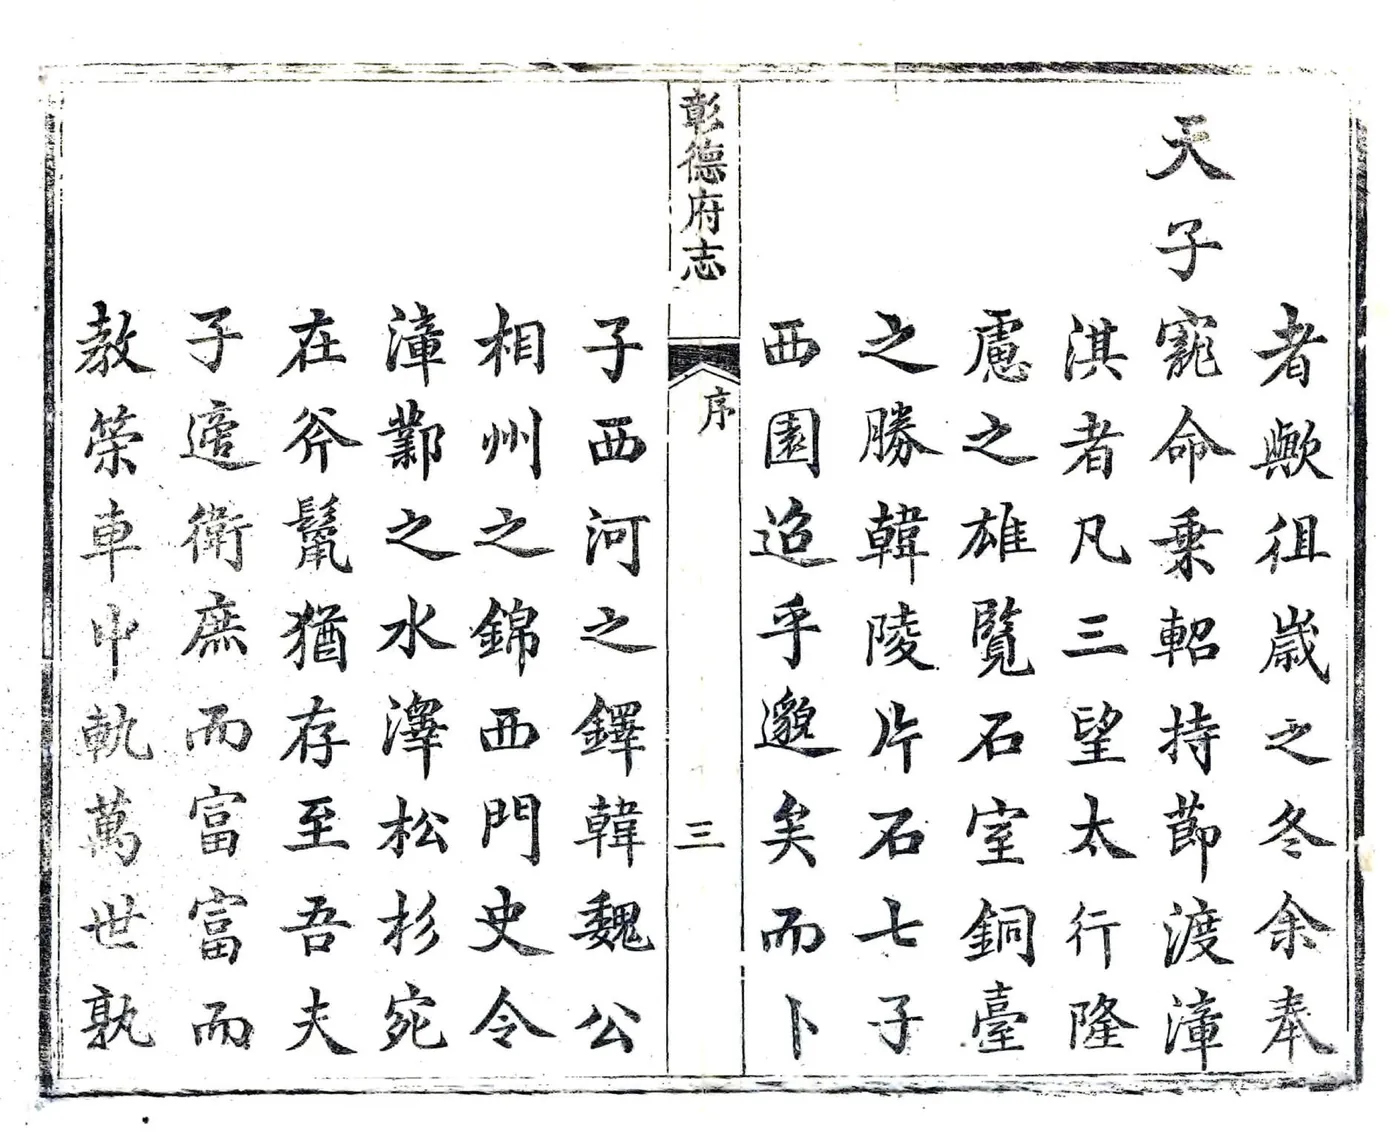 者歟徂歲之冬余奉
天子寵命乗軺持節渡漳
淇者凡三望太行隆
慮之雄覽石室銅臺
之勝韓陵片石七子
西園迢乎邈矣而卜
彰德府志
序
三
子西河之鐸韓魏公
相州之錦西門史令
漳鄴之水澤松杉宛
在斧鬣猶存至吾夫
子適衛庶而富富而
敎策車中軌萬世孰